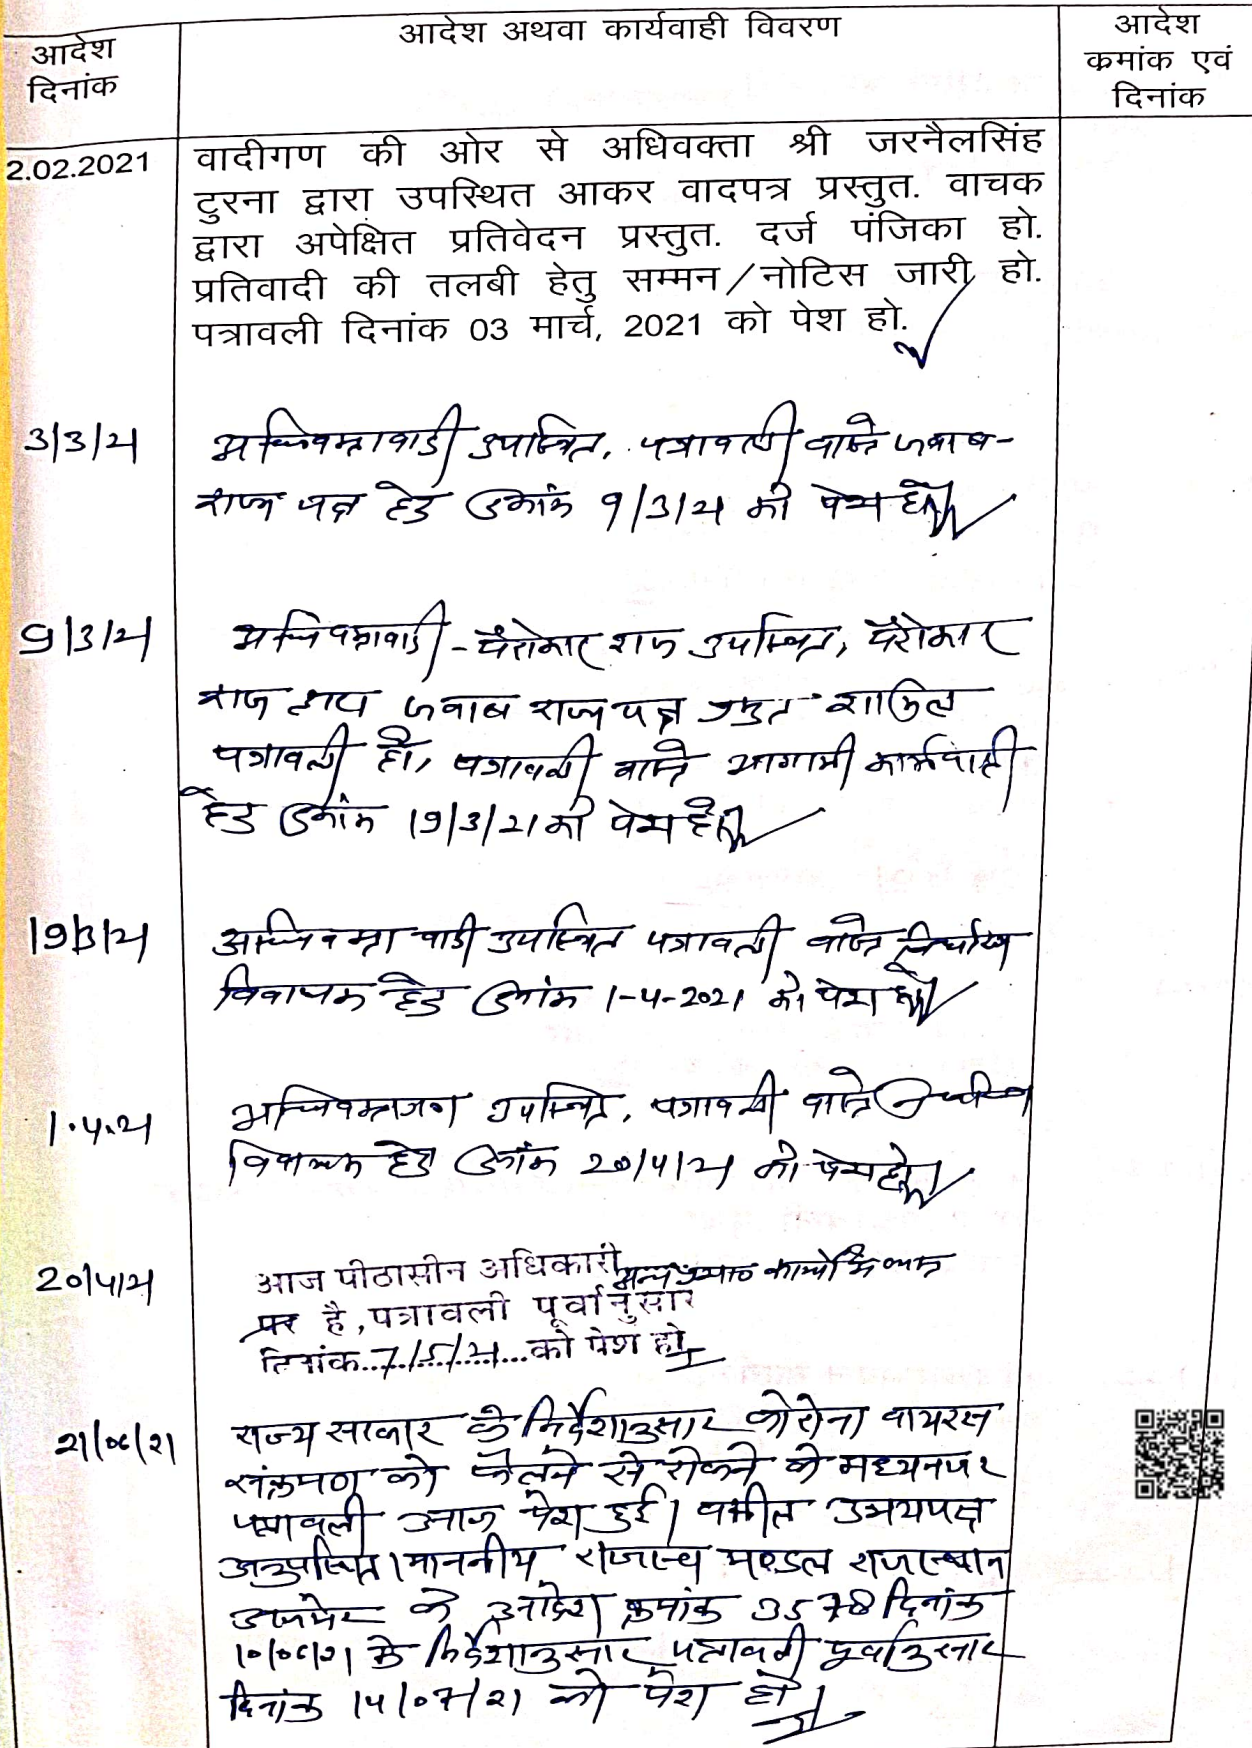 आदेश दिनांक
आदेश अथवा कार्यवाही विवरण
आदेश कमांक एवं दिनांक
2.02.2021
वादीगण की ओर से अधिवक्ता श्री जरनैलसिंह
टुरना द्वारा उपस्थित आकर वादपत्र प्रस्तुत. वाचक
द्वारा अपेक्षित प्रतिवेदन प्रस्तुत. दर्ज पंजिका हो.
प्रतिवादी की तलबी हेतु सम्मन/नोटिस जारी हो.
पत्रावली दिनांक 03 मार्च, 2021 को पेश हो.
3/3/21
अधिवक्ता वादी उपस्थित. पत्रावली वास्ते जवाब-
राज्य पक्ष हेतु दिनांक 9/3/21 को पेश हो
9/3/21
अधिवक्ता वादी - पैरोकार राज उपस्थित, पैरोकार
राज द्वारा जवाब राज्य पक्ष प्रस्तुत शामिल
पत्रावली हो, पत्रावली वास्ते आगामी कार्यवाही
हेतु दिनांक 19/3/21 को पेश हो
19/3/21
अधिवक्ता वादी उपस्थित पत्रावली वास्ते निर्धारण
विवाद्यक हेतु दिनांक 1-4-2021 को पेश हो
1.4.21
अधिवक्तागण उपस्थित, पत्रावली वास्ते निर्धारण
विवाद्यक हेतु दिनांक 20/4/21 को पेश हो
20/4/21
आज पीठासीन अधिकारी अन्य कार्यो में व्यस्त
है, पत्रावली पूर्वानुसार
दिनांक..7/5/21...को पेश हो
21/06/21
राज्य सरकार के निर्देशानुसार कोरोना वायरस
संक्रमण को फैलने से रोकने के मध्यनजर
पत्रावली आज पेश हुई। वकील उभयपक्ष
अनुपस्थित। माननीय राजस्व मण्डल राजस्थान
अजमेर के आदेश क्रमांक 3578 दिनांक
10/06/21 के निर्देशानुसार पत्रावली पूर्वानुसार
दिनांक 14/07/21 को पेश हो।